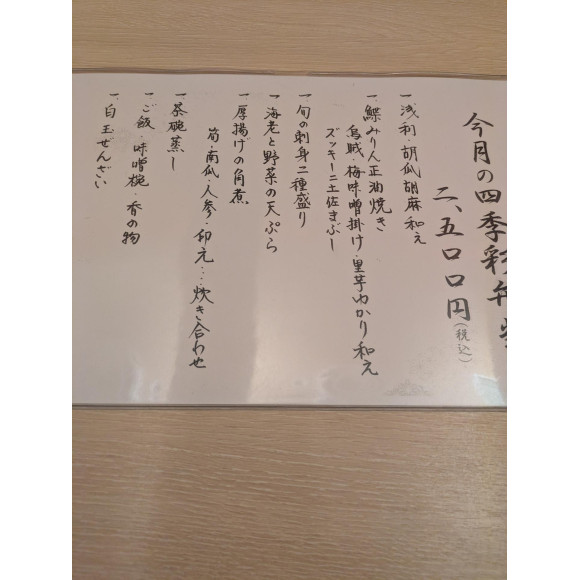 今月の四季彩弁当
二、五〇〇円(税込)
一 浅利・胡瓜胡麻和え
一 鰈みりん正油焼き
烏賊・梅味噌掛け・里芋ゆかり和え
ズッキーニ土佐まぶし
一 旬の刺身二種盛り
一 海老と野菜の天ぷら
一 厚揚げの角煮
筍・南瓜・人参・印元・・・炊き合わせ
一 茶碗蒸し
一 ご飯・味噌椀・香の物
一 白玉ぜんざい